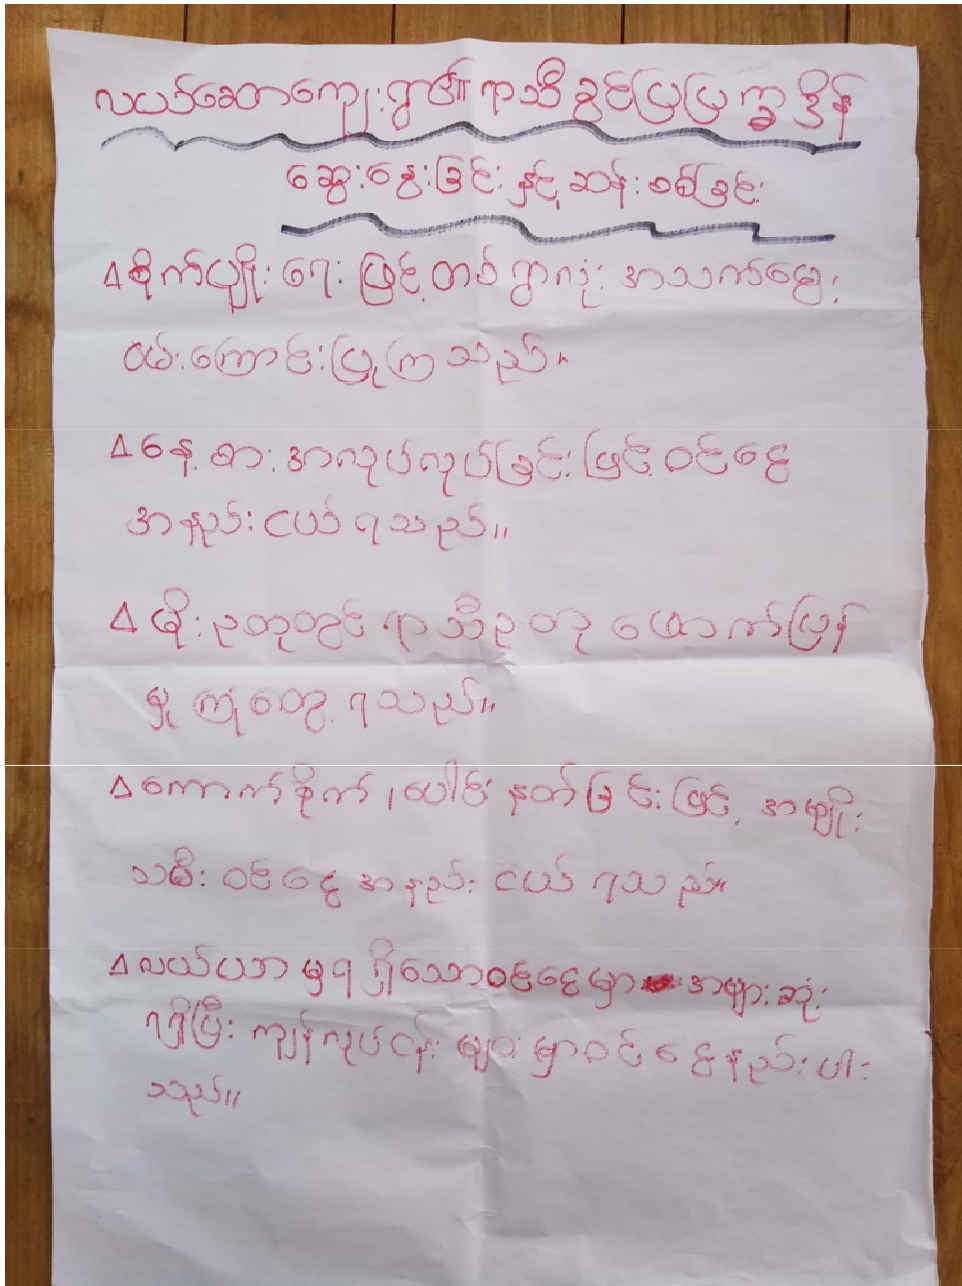 လယ်ဆောကျေးရွာ၏ ရာသီခွင်ပြပြက္ခဒိန်
ဆွေးနွေးခြင်းနှင့်ဆန်းစစ်ခြင်း
∆ စိုက်ပျိုးရေးဖြင့်တစ်ရွာလုံးအသက်မွေး
ဝမ်းကြောင်းပြုကြသည်။
∆ နေ့စားအလုပ်လုပ်ခြင်းဖြင့်ဝင်ငွေ
အနည်းငယ်ရသည်။
∆ မိုးဥတုတွင် ရာသီဥတု ဖောက်ပြန်
မှုကြုံတွေ့ရသည်။
∆ ကောက်စိုက်၊ပေါင်းနုတ်ခြင်းဖြင့် အမျိုး
သမီးဝင်ငွေအနည်းငယ်ရသည်။
∆ လယ်ယာမှရရှိသောဝင်ငွေမှာ အများဆုံး
ရရှိပြီးကျန်လုပ်ငန်းများမှာဝင်ငွေနည်းပါး
သည်။